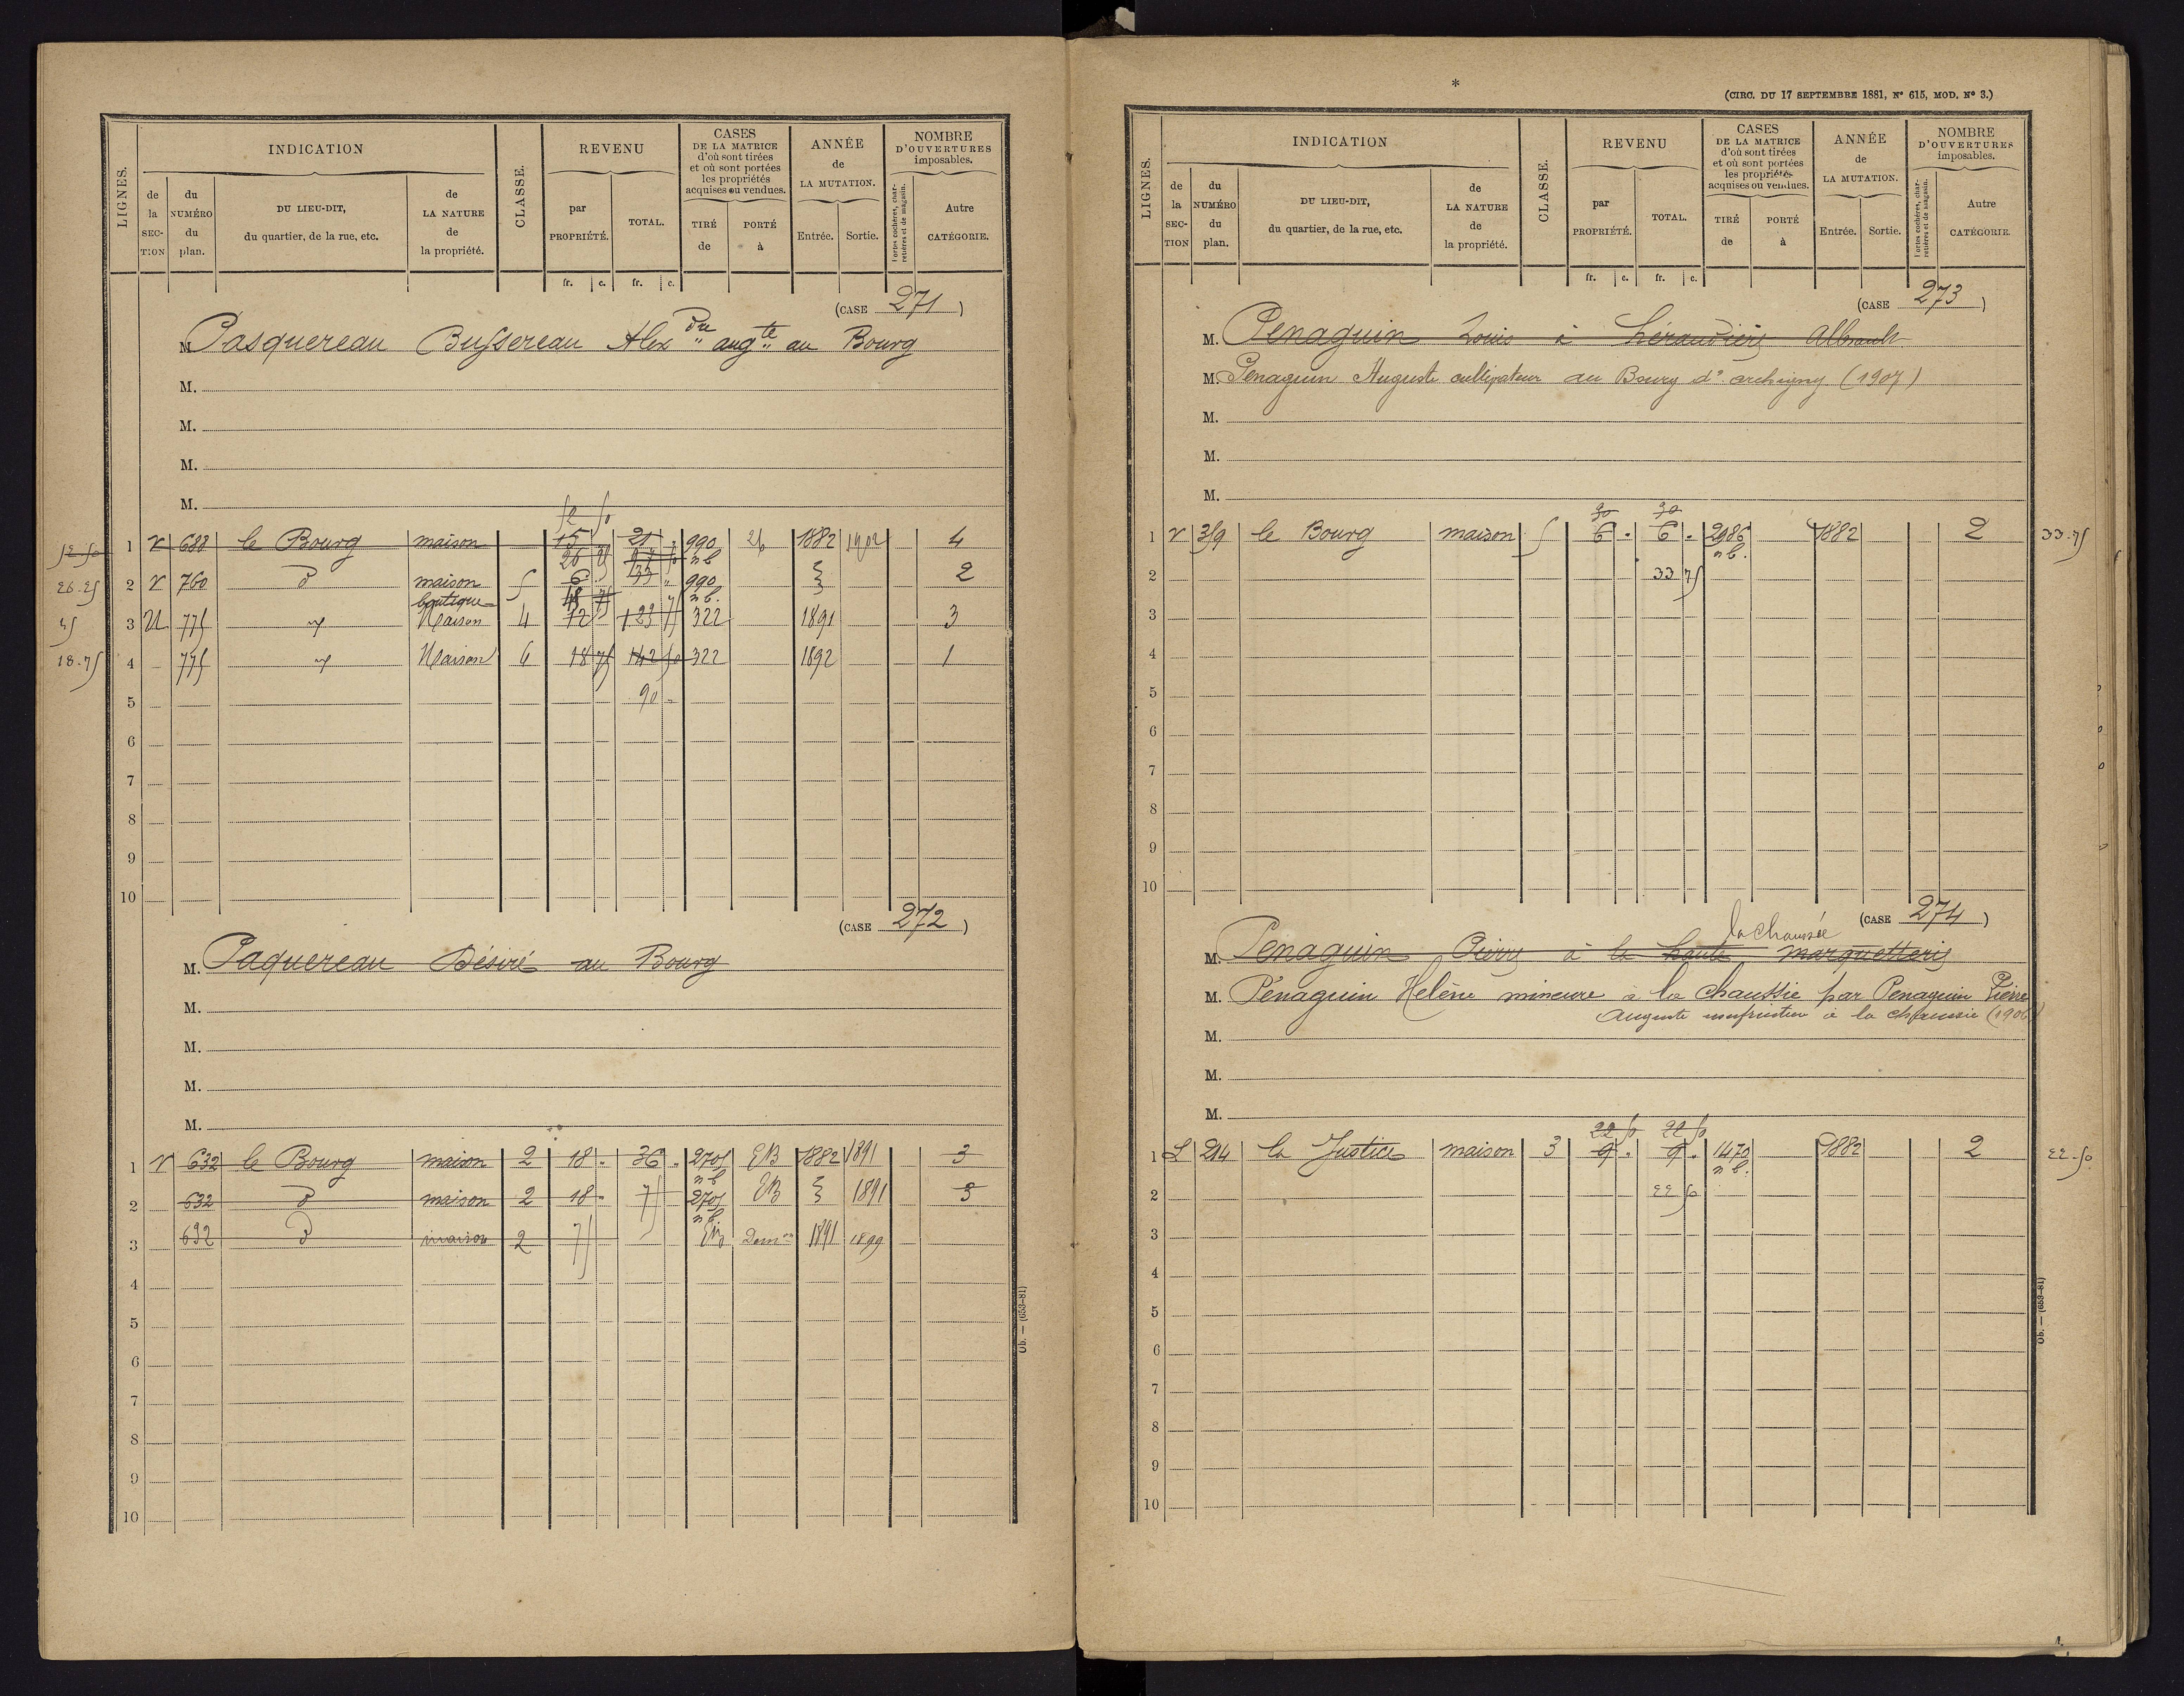 LIGNES.
INDICATION
de la SECTION
du NUMÉRO du plan.
DU LIEU-DIT, du quartier, de la rue, etc.
de LA NATURE de la propriété.
CLASSE.
REVENU
par PROPRIÉTÉ.
TOTAL.
fr. c. fr. c.
CASES DE LA MATRICE d'où sont tirées et où sont portées les propriétés acquises ou vendues.
TIRÉ de
PORTÉ à
ANNÉE de LA MUTATION.
Entrée. Sortie.
NOMBRE D'OUVERTURES imposables.
Portes cochères, charretières et de magasin.
Autre CATÉGORIE.
(CASE 271)
M. Pasquereau Bussereau Alex dre augte au Bourg
M.
M.
M.
M.
52 50
52 50 1 V 688 le Bourg maison 15 21 990 26 1882 1902 4
26 25 n b
26.25 2 V 760 d° maison 5 6 990 2
boutique 18 75 n b.
45 3 U 775 Maison 4 12 123 75 322 1891 3
18.75 4 775 Maison 6 18 75 142 50 322 1892 1
5 90
6
7
8
9
10
(CASE 272)
M. Paquereau Désiré au Bourg
M.
M.
M.
M.
1 V 632 le Bourg maison 2 18 . 36 . 2705 EB 1882 1891 3
n b
2 632 d° maison 2 18 75 2705 EB 1891 3
n b
3 632 d° maison 2 75 Dem on 1891 1899
4
5
6
7
8
9
10
Ob. — (653-81)
*
(CIRC. DU 17 SEPTEMBRE 1881, N° 615, MOD. N° 3.)
LIGNES.
INDICATION
de la SECTION
du NUMÉRO du plan.
DU LIEU-DIT, du quartier, de la rue, etc.
de LA NATURE de la propriété.
CLASSE.
REVENU
par PROPRIÉTÉ.
TOTAL.
fr. c. fr. c.
CASES DE LA MATRICE d'où sont tirées et où sont portées les propriétés acquises ou vendues.
TIRÉ de
PORTÉ à
ANNÉE de LA MUTATION.
Entrée. Sortie.
NOMBRE D'OUVERTURES imposables.
Portes cochères, charretières et de magasin.
Autre CATÉGORIE.
(CASE 273)
M. Penaguin Louis à
M. Penaguin Auguste cultivateur au Bourg d'archigny (1907)
M.
M.
M.
30 30
1 V 359 le Bourg maison 5 6 . 6 . 2986 1882 2 33.75
n b.
2 33 75
3
4
5
6
7
8
9
10
(CASE 274)
la chaussée
M. Penaguin Pierre à la haute marquetterie
M. Pénaguin Helène mineure à la chaussie par Penaguin Pierre
Auguste usufruitier à la chaussie (1906)
M.
M.
M.
22 50 22 50
1 L 214 la Justice maison 3 9 . 9 . 1470 1882 2 22.50
n b.
2 22 50
3
4
5
6
7
8
9
10
Ob. — (653-81)